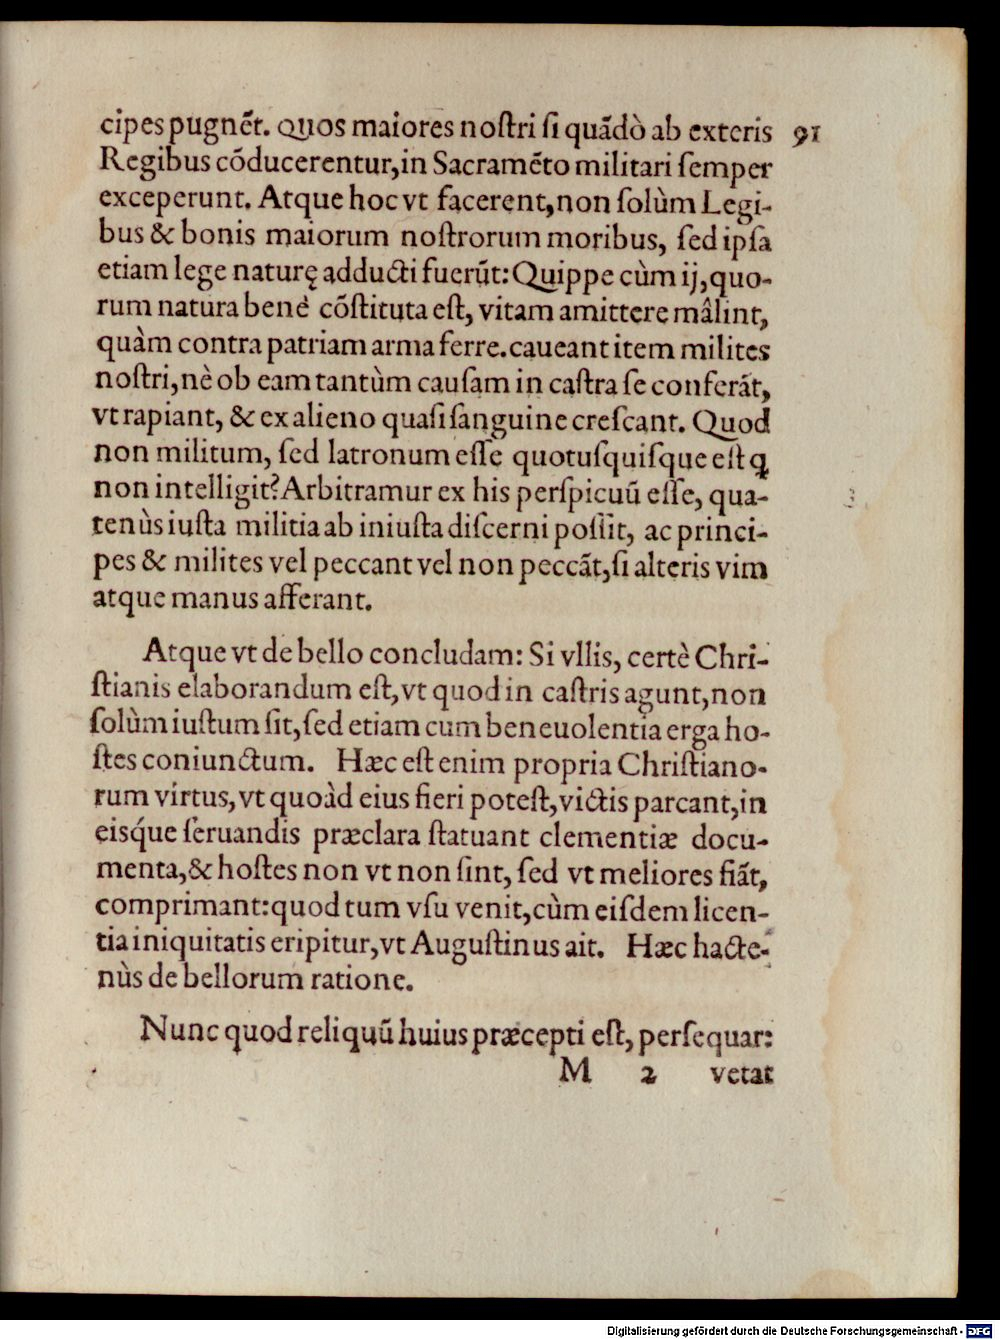 cipes pugnẽt. Quos maiores noſtri ſi quãdò ab exteris 91
Regibus cõducerentur, in Sacramẽto militari ſemper
exceperunt. Atque hoc vt facerent, non ſolùm Legi-
bus & bonis maiorum noſtrorum moribus, ſed ipſa
etiam lege naturę adducti fuerũt: Quippe cùm ij, quo-
rum natura benè cõſtituta eſt, vitam amittere mâlint,
quàm contra patriam arma ferre. caueant item milites
noſtri, nè ob eam tantùm cauſam in caſtra ſe conferãt,
vt rapiant, & ex alieno quaſi ſanguine creſcant. Quod
non militum, ſed latronum eſſe quotuſquiſque eſt ꝗ
non intelligit? Arbitramur ex his perſpicuũ eſſe, qua-
tenùs iuſta militia ab iniuſta diſcerni poſſit, ac princi-
pes & milites vel peccant vel non peccãt, ſi alteris vim
atque manus afferant.
Atque vt de bello concludam: Si vllis, certè Chri-
ſtianis elaborandum eſt, vt quod in caſtris agunt, non
ſolùm iuſtum ſit, ſed etiam cum beneuolentia erga ho-
ſtes coniunctum. Hæc eſt enim propria Chriſtiano-
rum virtus, vt quoàd eius fieri poteſt, victis parcant, in
eisq́ue ſeruandis præclara ſtatuant clementiæ docu-
menta, & hoſtes non vt non ſint, ſed vt meliores fiãt,
comprimant: quod tum vſu venit, cùm eiſdem licen-
tia iniquitatis eripitur, vt Auguſtinus ait. Hæc hacte-
nùs de bellorum ratione.
Nunc quod reliquũ huius præcepti eſt, perſequar:
M 2 vetat
Digitalisierung gefördert durch die Deutsche Forschungsgemeinschaft - DFG